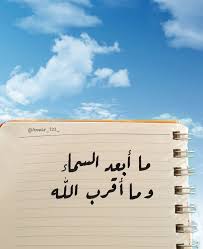 ما أبعد السماء
وما أقرب الله